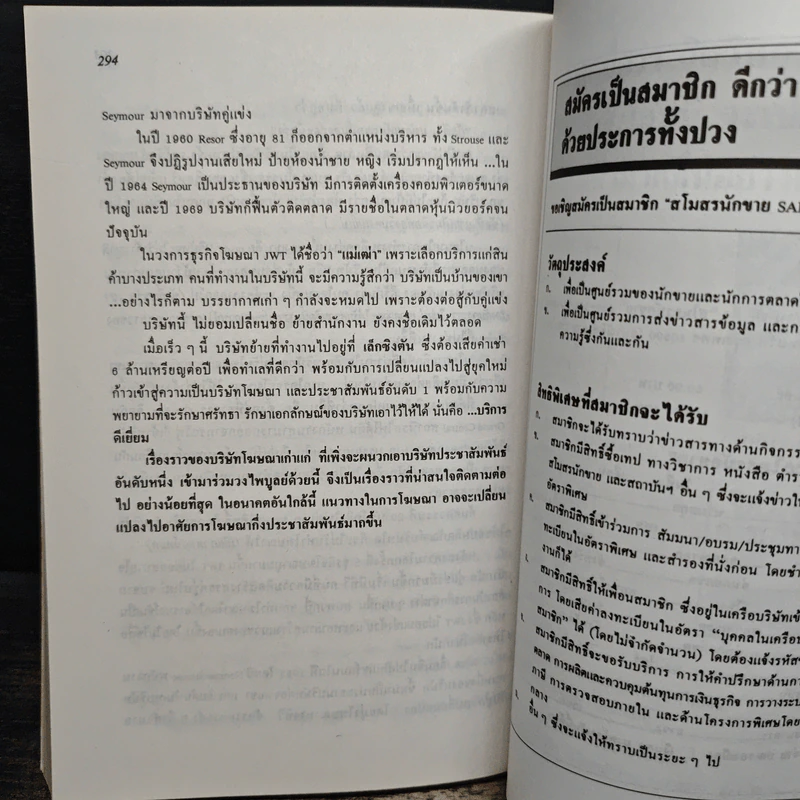 294
Seymour มาจากบริษัทคู่แข่ง
ในปี 1960 Resor ซึ่งอายุ 81 ก็ออกจากตำแหน่งบริหาร ทั้ง Strouse และ
Seymour จึงปฏิรูปงานเสียใหม่ ป้ายห้องน้ำชาย หญิง เริ่มปรากฏให้เห็น ...ใน
ปี 1964 Seymour เป็นประธานของบริษัท มีการติดตั้งเครื่องคอมพิวเตอร์ขนาด
ใหญ่ และปี 1969 บริษัทก็ฟื้นตัวติดตลาด มีรายชื่อในตลาดหุ้นนิวยอร์คจน
ปัจจุบัน
ในวงการธุรกิจโฆษณา JWT ได้ชื่อว่า "แม่เฒ่า" เพราะเลือกบริการแก่สิน
ค้าบางประเภท คนที่ทำงานในบริษัทนี้ จะมีความรู้สึกว่า บริษัทเป็นบ้านของเขา
...อย่างไรก็ตาม บรรยากาศเก่า ๆ กำลังจะหมดไป เพราะต้องต่อสู้กับคู่แข่ง
บริษัทนี้ ไม่ยอมเปลี่ยนชื่อ ย้ายสำนักงาน ยังคงชื่อเดิมไว้ตลอด
เมื่อเร็ว ๆ นี้ บริษัทย้ายที่ทำงานไปอยู่ที่ เล็กซิงตัน ซึ่งต้องเสียค่าเช่า
6 ล้านเหรียญต่อปี เพื่อทำเลที่ดีกว่า พร้อมกับการเปลี่ยนแปลงไปสู่ยุคใหม่
ก้าวเข้าสู่ความเป็นบริษัทโฆษณา และประชาสัมพันธ์อันดับ 1 พร้อมกับความ
พยายามที่จะรักษาศรัทธา รักษาเอกลักษณ์ของบริษัทเอาไว้ให้ได้ นั่นคือ ...บริการ
ดีเยี่ยม
เรื่องราวของบริษัทโฆษณาเก่าแก่ ที่เพิ่งจะผนวกเอาบริษัทประชาสัมพันธ์
อันดับหนึ่ง เข้ามาร่วมวงไพบูลย์ด้วยนี้ จึงเป็นเรื่องราวที่น่าสนใจติดตามต่อ
ไป อย่างน้อยที่สุด ในอนาคตอันใกล้นี้ แนวทางในการโฆษณา อาจจะเปลี่ยน
แปลงไปอาศัยการโฆษณากึ่งประชาสัมพันธ์มากขึ้น
สมัครเป็นสมาชิก ดีกว่า
ด้วยประการทั้งปวง
ขอเชิญสมัครเป็นสมาชิก "สโมสรนักขาย
วัตถุประสงค์
ก. เพื่อเป็นศูนย์รวมของนักขายและนักการตลาด
ข. เพื่อเป็นศูนย์รวมการส่งข่าวสารข้อมูล และ
ความรู้ซึ่งกันและกัน
สิทธิพิเศษที่สมาชิกจะได้รับ
ก. สมาชิกจะได้รับทราบว่าข่าวสารทางด้านกิจกรร
ข. สมาชิกมีสิทธิ์ซื้อเทป ทางวิชาการ หนังสือ ตำรา
สโมสรนักขาย และสถาบันฯ อื่น ๆ ซึ่งจะแจ้งข่าวให้
อัตราพิเศษ
สมาชิกมีสิทธิ์เข้าร่วมการ สัมมนา/อบรม/ประชุมทาง
ทะเบียนในอัตราพิเศษ และสำรองที่นั่งก่อน โดย
งานก็ได้
สมาชิกมีสิทธิ์ให้เพื่อนสมาชิก ซึ่งอยู่ในเครือบริษัท
การ โดยเสียค่าลงทะเบียนในอัตรา "บุคคลในเครือ
สมาชิก" ได้ (โดยไม่จำกัดจำนวน) โดยต้องแจ้งรหัส
สมาชิกมีสิทธิ์จะขอรับบริการ การให้คำปรึกษาด้าน
ตลาด การผลิตและควบคุมต้นทุนการเงินธุรกิจ การวางระบ
ภาษี การตรวจสอบภายใน และด้านโครงการพิเศษโดย
กลาง
อื่น ๆ ซึ่งจะแจ้งให้ทราบเป็นระยะ ๆ ไป